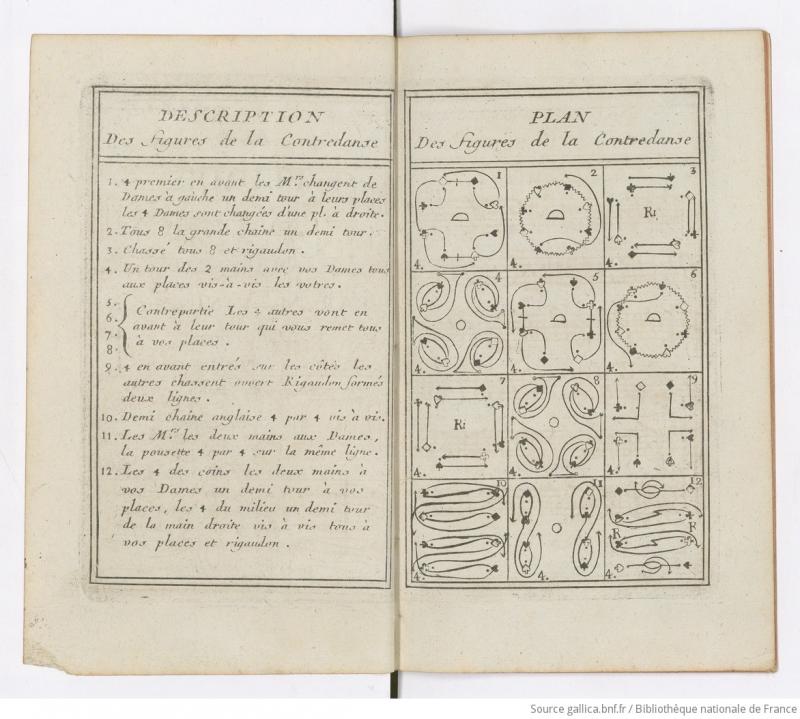 DESCRIPTION
Des figures de la Contredanse
1. 4 premier en avant les M.rs changent de
Dames a gauche un demi tour à leurs places
les 4 Dames sont changées d'une pl. à droite.
2. Tous 8 la grande chaine un demi tour.
3. Chassé tous 8 et rigaudon.
4. Un tour des 2 mains avec vos Dames tous
aux places vis-à-vis les votres.
5.
6.
7.
8.
Contrepartie Les 4 autres vont en
avant à leur tour qui vous remet tous
à vos places.
9. 4 en avant entrés sur les côtés les
autres chassent ouvert Rigaudon formés
deux lignes.
10. Demi chaine anglaise 4 par 4 vis à vis.
11. Les M.rs les deux mains aux Dames,
la pousette 4 par 4 sur la même ligne.
12. Les 4 des coins les deux mains à
vos Dames un demi tour à vos
places, les 4 du milieu un demi tour
de la main droite vis à vis tous à
vos places et rigaudon.
PLAN
Des figures de la Contredanse
1 2 3
D D Ri
4. 4. 4.
4 5 6
D D
4. 4. 4.
7 8 9
Ri
4. 4. 4.
10 11 12
R R
4. 4. 4.
Source gallica.bnf.fr / Bibliothèque nationale de France